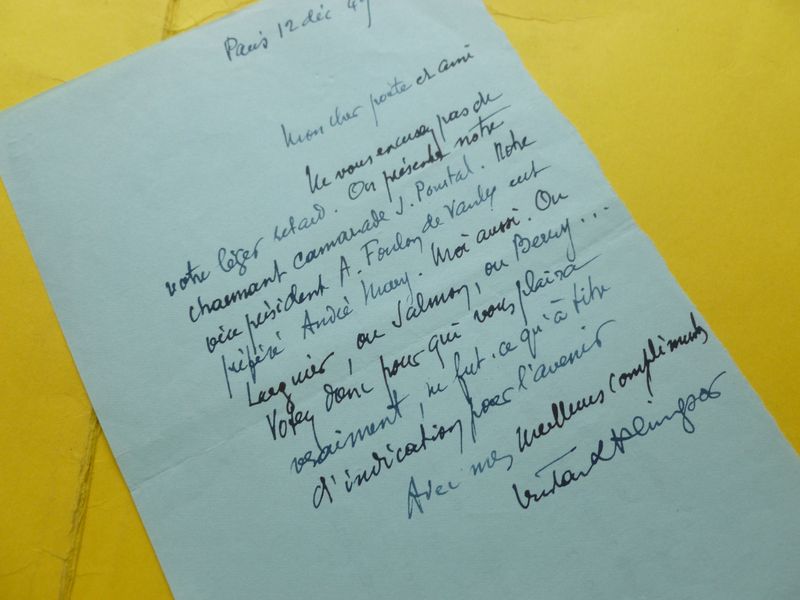 Paris 12 déc 47
Mon cher poète et ami
Ne vous excusez pas de
votre léger retard. On présente notre
charmant camarade J. Pourtal. Notre
vice président A. Foulon de Vaulx eut
préféré André Mary. Moi aussi. Ou
Larguier, ou Salmon, ou Berry...
Votez donc pour qui vous plaira
vraiment, ne fut-ce qu'à titre
d'indication pour l'avenir
Avec mes meilleurs compliments
Tristan Klingsor